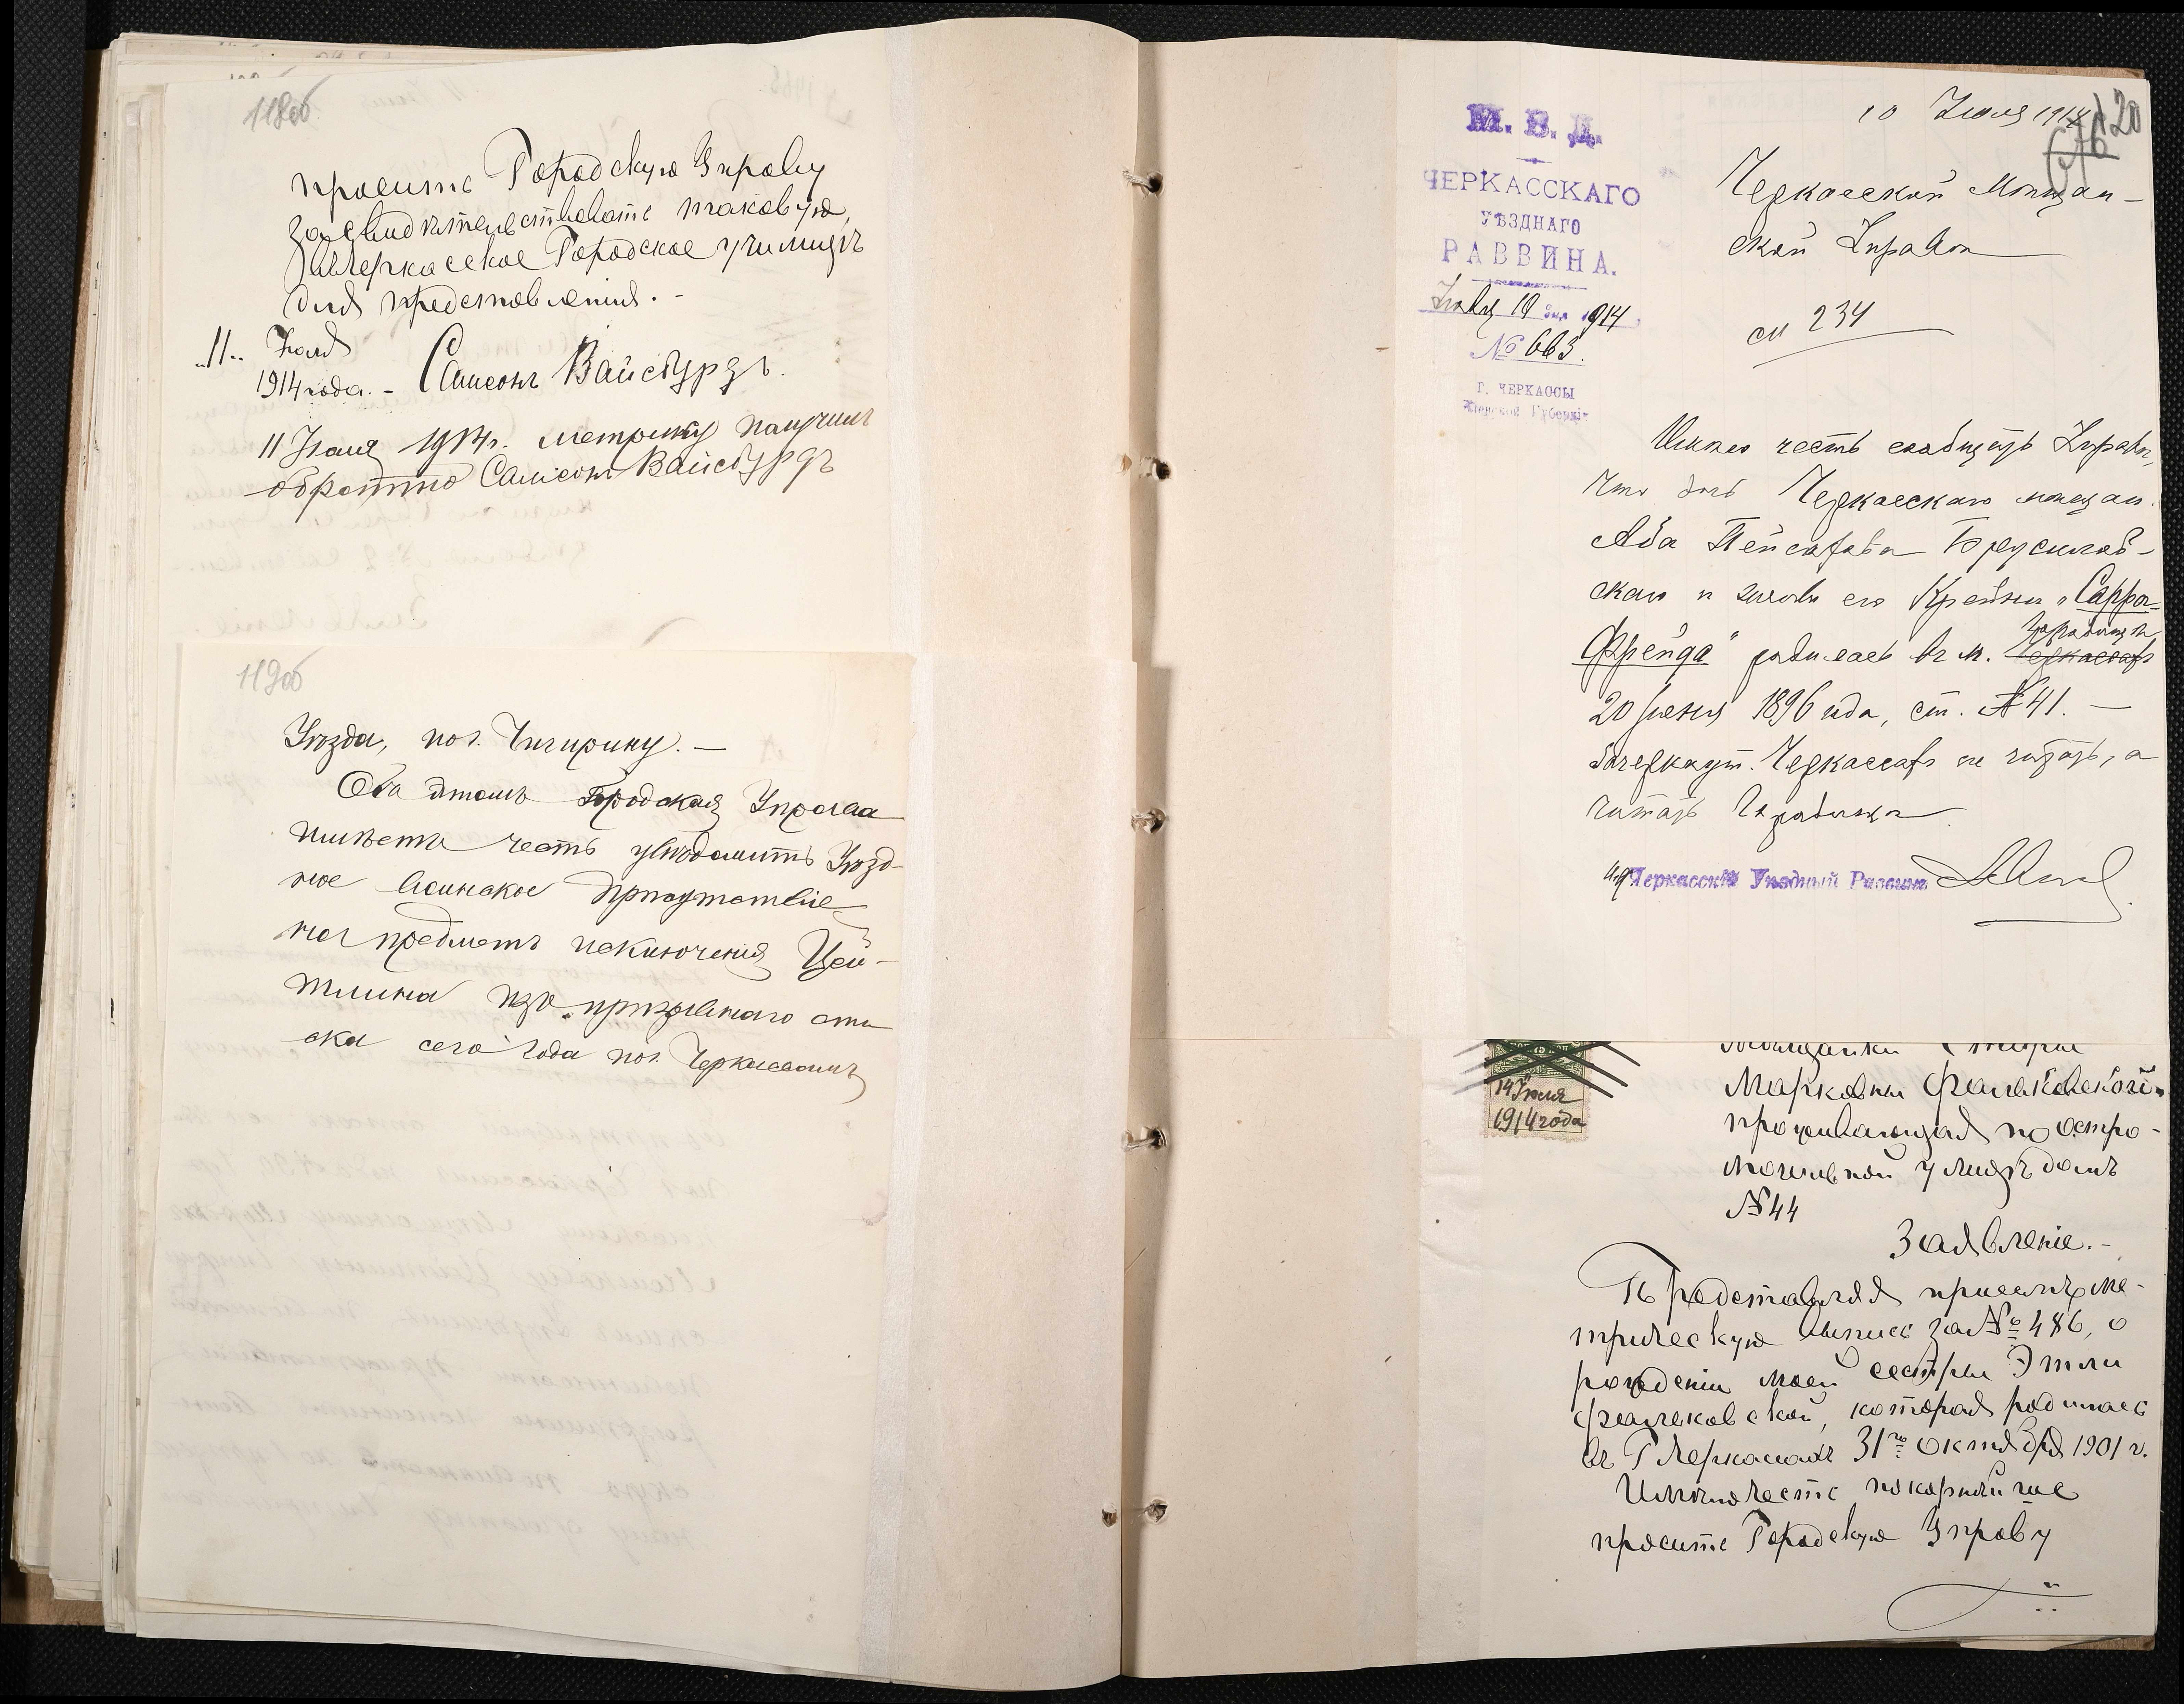 118об
просить Городскую Управу
засвидѣтельствовать таковую,
въ Черкасское Городское училищѣ
для представленія. -
„11„ Іюля
1914 года. - Самсонъ Вайсбурдъ.
11 Іюля 1914г. метрику получилъ
обратно Самсонъ Вайсбурдъ
119об
Уѣзда, по г. Чигирину. —
Объ этомъ Городская Управа
имѣетъ честь увѣдомить Уѣзд-
ное Воинское Присутствіе
на предметъ исключенія Цей-
тлина изъ призывнаго спи
ска сего года по г. Черкассамъ
М. В. Д.
ЧЕРКАССКАГО
УѢЗДНАГО
РАВВИНА.
Іюля 10 дня 1914
№ 663.
Г. ЧЕРКАССЫ
Кіевской Губерніи
10 Іюля 1914
120
Черкасской Мѣщан-
ской Управѣ
см 234
Имѣю честь сообщить Управѣ,
что дочь Черкасскаго мѣщан.
Аба Пейсахова Бреусилов-
скаго и жены его Крейны „Сарра-
Фрейда" родилась въ м.
Черкассахъ
20 Іюня 1896 года, ст. № 41. —
Зачеркнут. Черкассахъ не читать, а
читать
Черкасскій Уѣздный Раввинъ
14 Іюля
1914 года
Марковны Фаликовской
проживающая по Остро-
могильной улицѣ домъ
№ 44
Заявленіе. -
Представляя присемъ ме-
трическую выпись за № 486, о
рожденіи моей сестры Этли
Фаликовской, которая родилась
въ Г Черкассахъ 31го октября 1901 г.
Имѣю честь покорнѣйше
просить Городскую Управу